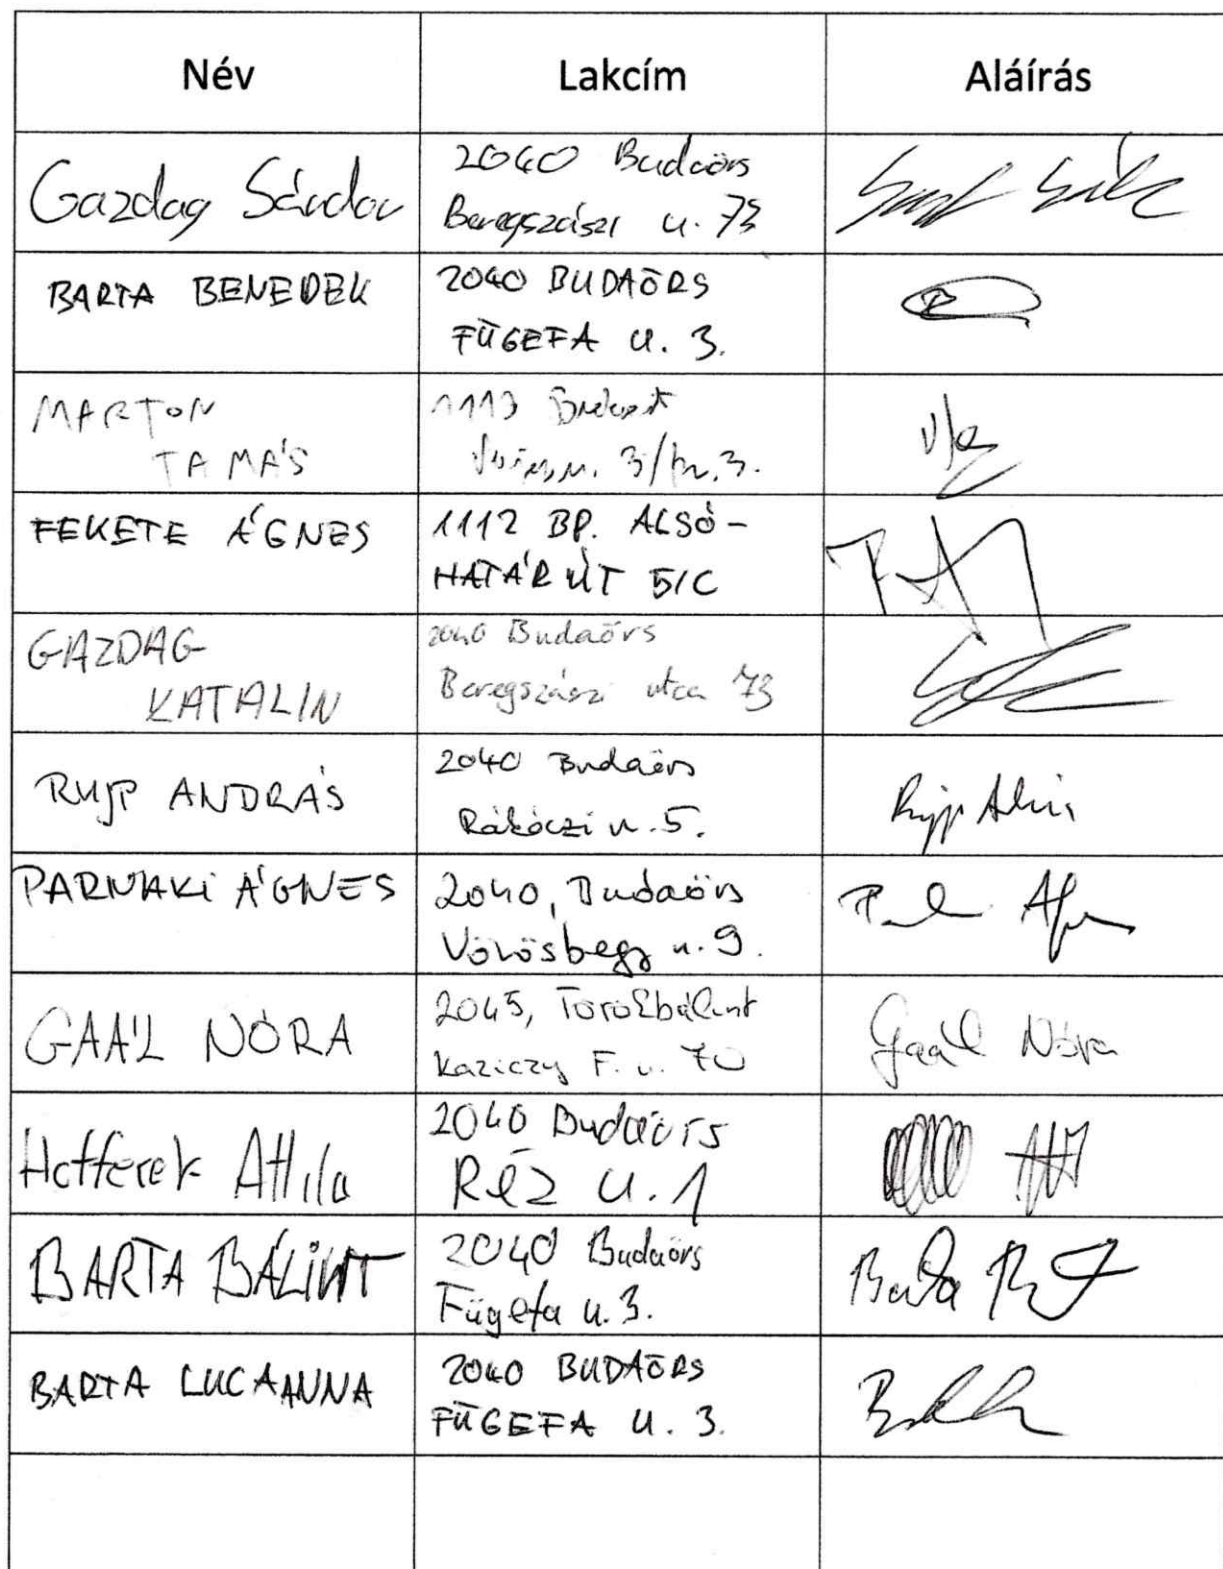 Név Lakcím Aláírás
Gazdag Sándor
2040 Budaörs
Beregszászi u. 73
BARTA BENEDEK
2040 BUDAÖRS
FÜGEFA U. 3.
MARTON
TAMÁS
1113 Budapest
3/fsz. 3.
FEKETE ÁGNES
1112 BP. ALSÓ-
HATÁR ÚT 5/C
GAZDAG
KATALIN
2040 Budaörs
Beregszászi utca 73
RUJP ANDRÁS
2040 Budaörs
Rákóczi u. 5.
PARNAKI ÁGNES
2040, Budaörs
Vörösbegy u. 9.
GAÁL NÓRA
2045, Törökbálint
Kaziczy F. u. 70
Gaál Nóra
Hetferek Attila
2040 Budaörs
Réz u. 1
BARTA BÁLINT
2040 Budaörs
Fügefa u. 3.
BARTA LUCA ANNA
2040 BUDAÖRS
FÜGEFA U. 3.